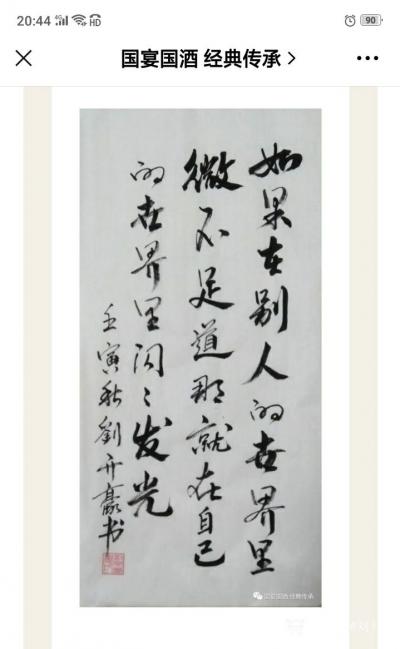 20:44
4G
HD
90
国宴国酒 经典传承
如果在别人的世界里
微不足道那就在自己
的世界里闪々发光
壬寅秋劉开豪书
国宴国酒经典传承